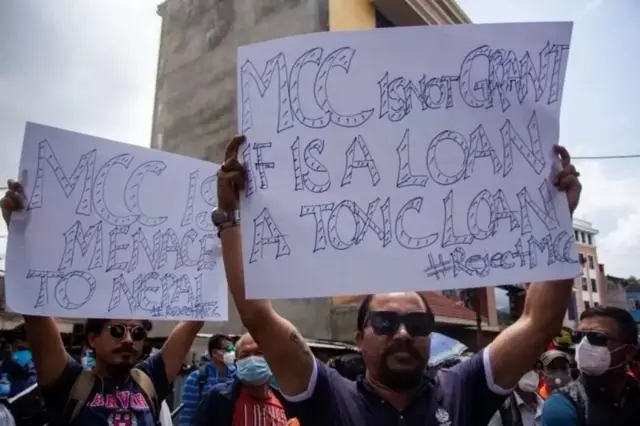 MCC IS
MENACE
TO NEPAL
#RejectMCC
MCC IS NOT GRANT
IF IS A LOAN
A TOXIC LOAN
#RejectMCC